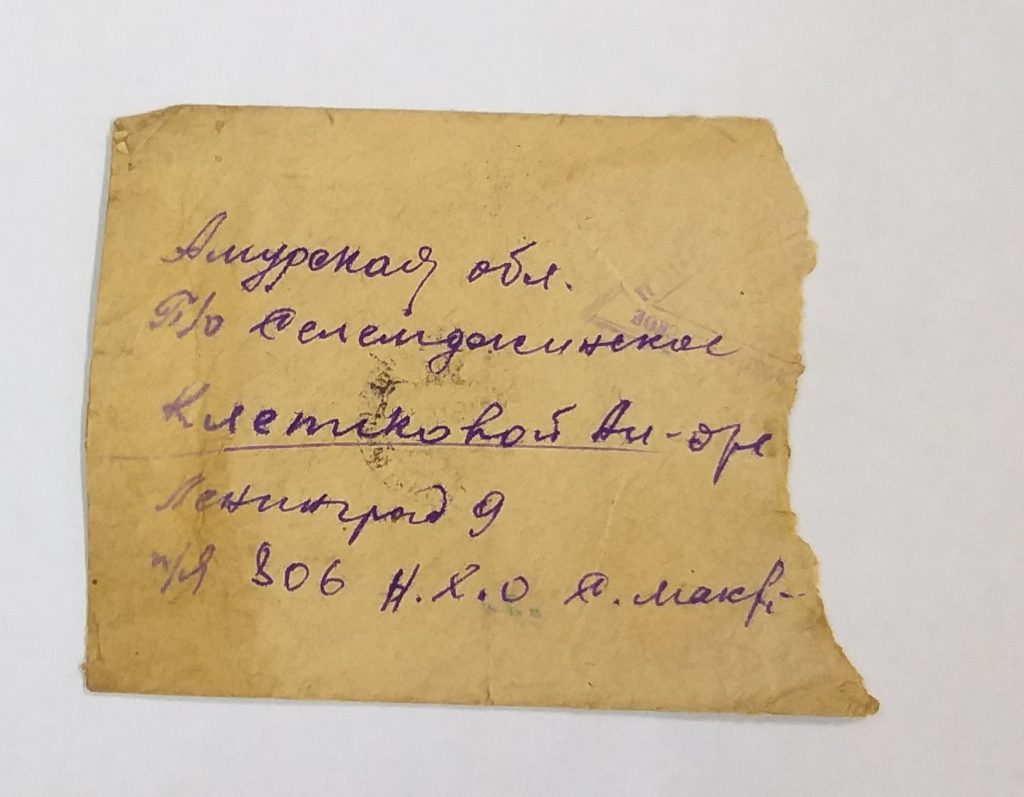 Амурская обл.
П/о Селемджинское
Клетиковой Ан-
Ленинград 9
п/я 306 Н.Х.О С.